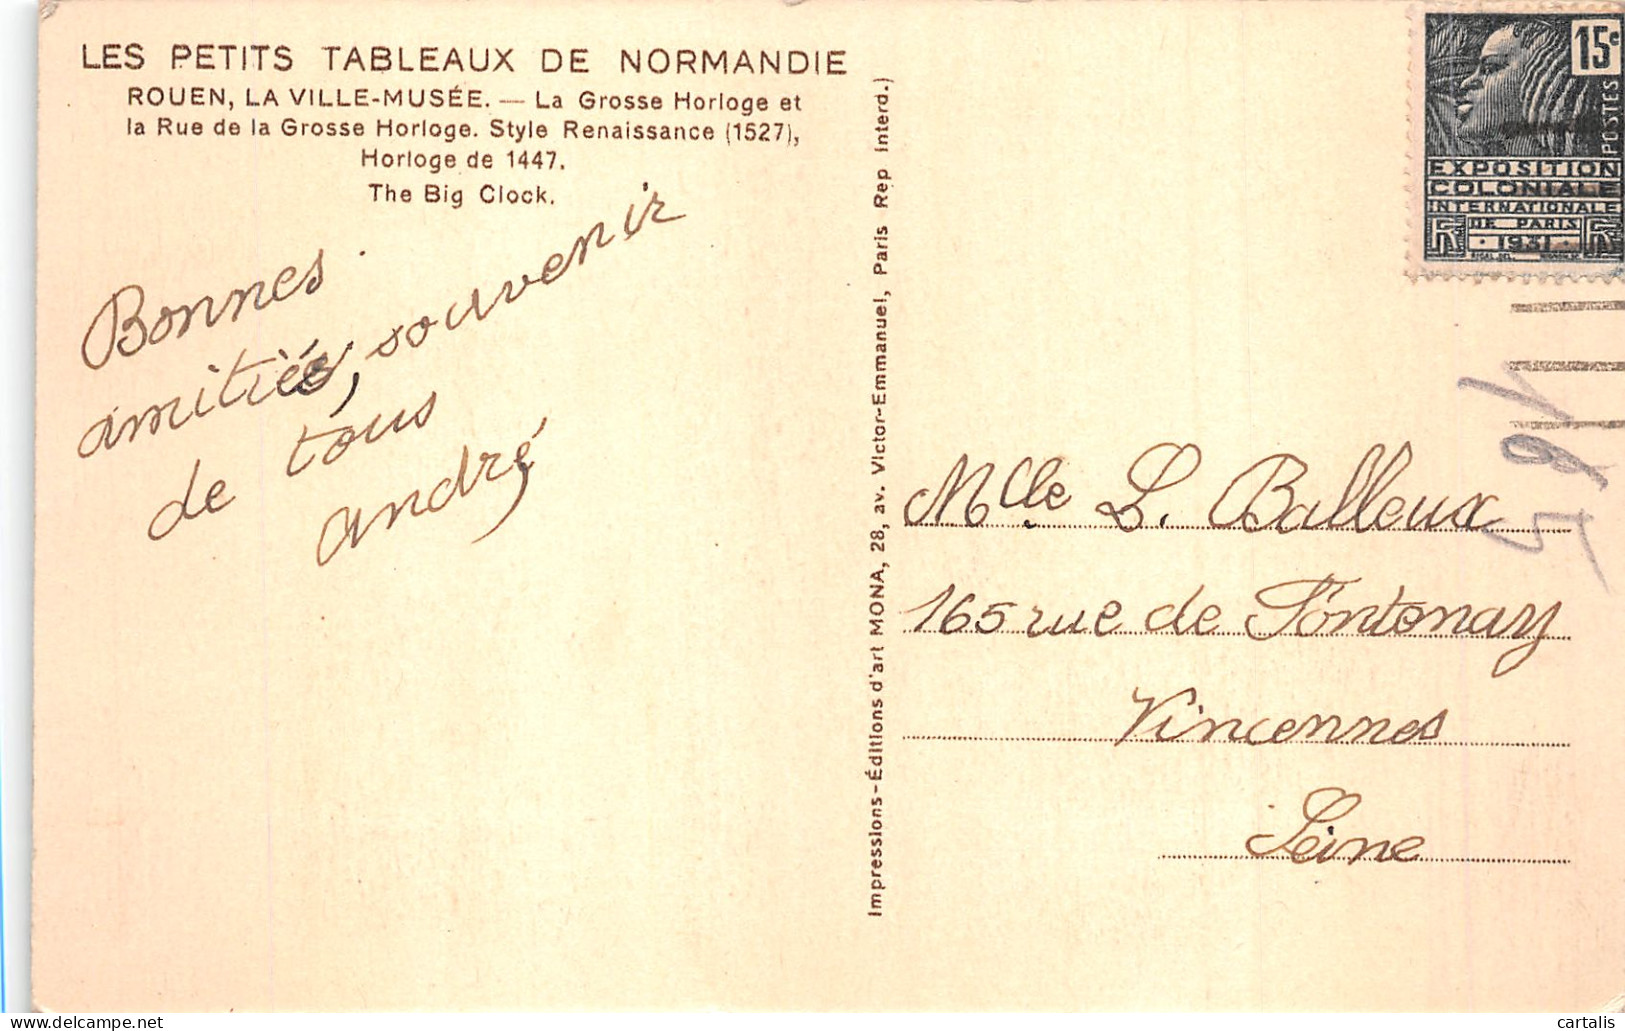 LES PETITS TABLEAUX DE NORMANDIE
ROUEN, LA VILLE-MUSÉE. — La Grosse Horloge et
la Rue de la Grosse Horloge. Style Renaissance (1527),
Horloge de 1447.
The Big Clock.
Bonnes
amitiés, souvenir
de tous
andré
Impressions-Éditions d'art MONA, 28, av. Victor-Emmanuel, Paris Rep Interd.)
15c
POSTES
EXPOSITION
COLONIALE
INTERNATIONALE
DE PARIS
RF · 1931 · RF
Mlle L. Balleux
165 rue de Fontenay
Vincennes
Seine
cartalis